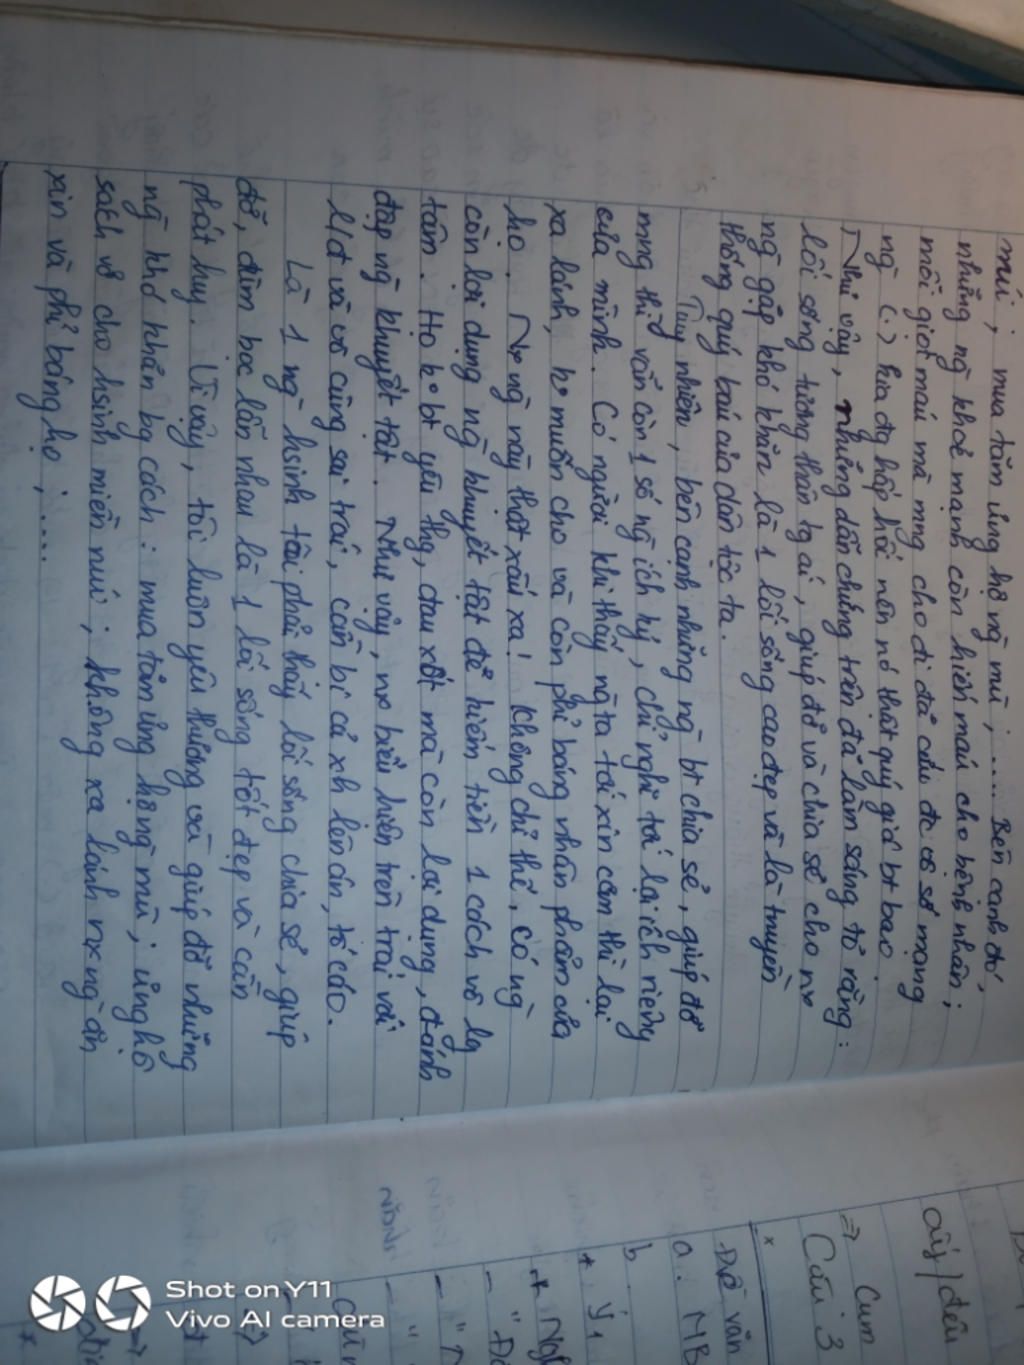 mù ; mua tăm ủng hộ ng mù ; ..... Bên cạnh đó,
những ng khoẻ mạnh còn hiến máu cho bệnh nhân ;
mỗi giọt máu mà mng cho đi đã cứu đc vô số mạng
ng (.) hấp hối nên nó thật quý giá bt bao
Như vậy, những dẫn chứng trên đã làm sáng tỏ rằng :
lối sống tương thân tg ái, giúp đỡ và chia sẻ cho n~
ng gặp khó khăn là 1 lối sống cao đẹp và là truyền
thống quý báu của dân tộc ta.
Tuy nhiên, bên cạnh những ng bt chia sẻ, giúp đỡ
mng thì vẫn còn 1 số ng ích kỷ, chỉ nghĩ tới lợi ích riêng
của mình. Có người khi thấy ng ta tới xin cơm thì lại
xa lánh, ko muốn cho và còn phỉ báng nhân phẩm của
họ. N~ ng này thật xấu xa! Không chỉ thế, có ng
còn lợi dụng ng khuyết tật để kiếm tiền 1 cách vô lg
tâm. Họ ko bt yêu thg, đau xót mà còn lợi dụng, đánh
đập ng khuyết tật. Như vậy, n~ biểu hiện trên trái với
l/đ và vô cùng sai trái, cần bị cả xh lên án, tố cáo.
Là 1 ng hsinh tôi phải thấy lối sống chia sẻ, giúp
đỡ, đùm bọc lẫn nhau là 1 lối sống tốt đẹp và cần
phát huy. Vì vậy, tôi luôn yêu thương và giúp đỡ những
ng khó khăn bg cách : mua tăm ủng hộ ng mù ; ủng hộ
sách vở cho hsinh miền núi ; không xa lánh n~ ng ăn
xin và phỉ báng họ ; .....
ấy / đều
=> Cụm
Câu 3
x
Đề văn
a. MB
b
+ Ý 1